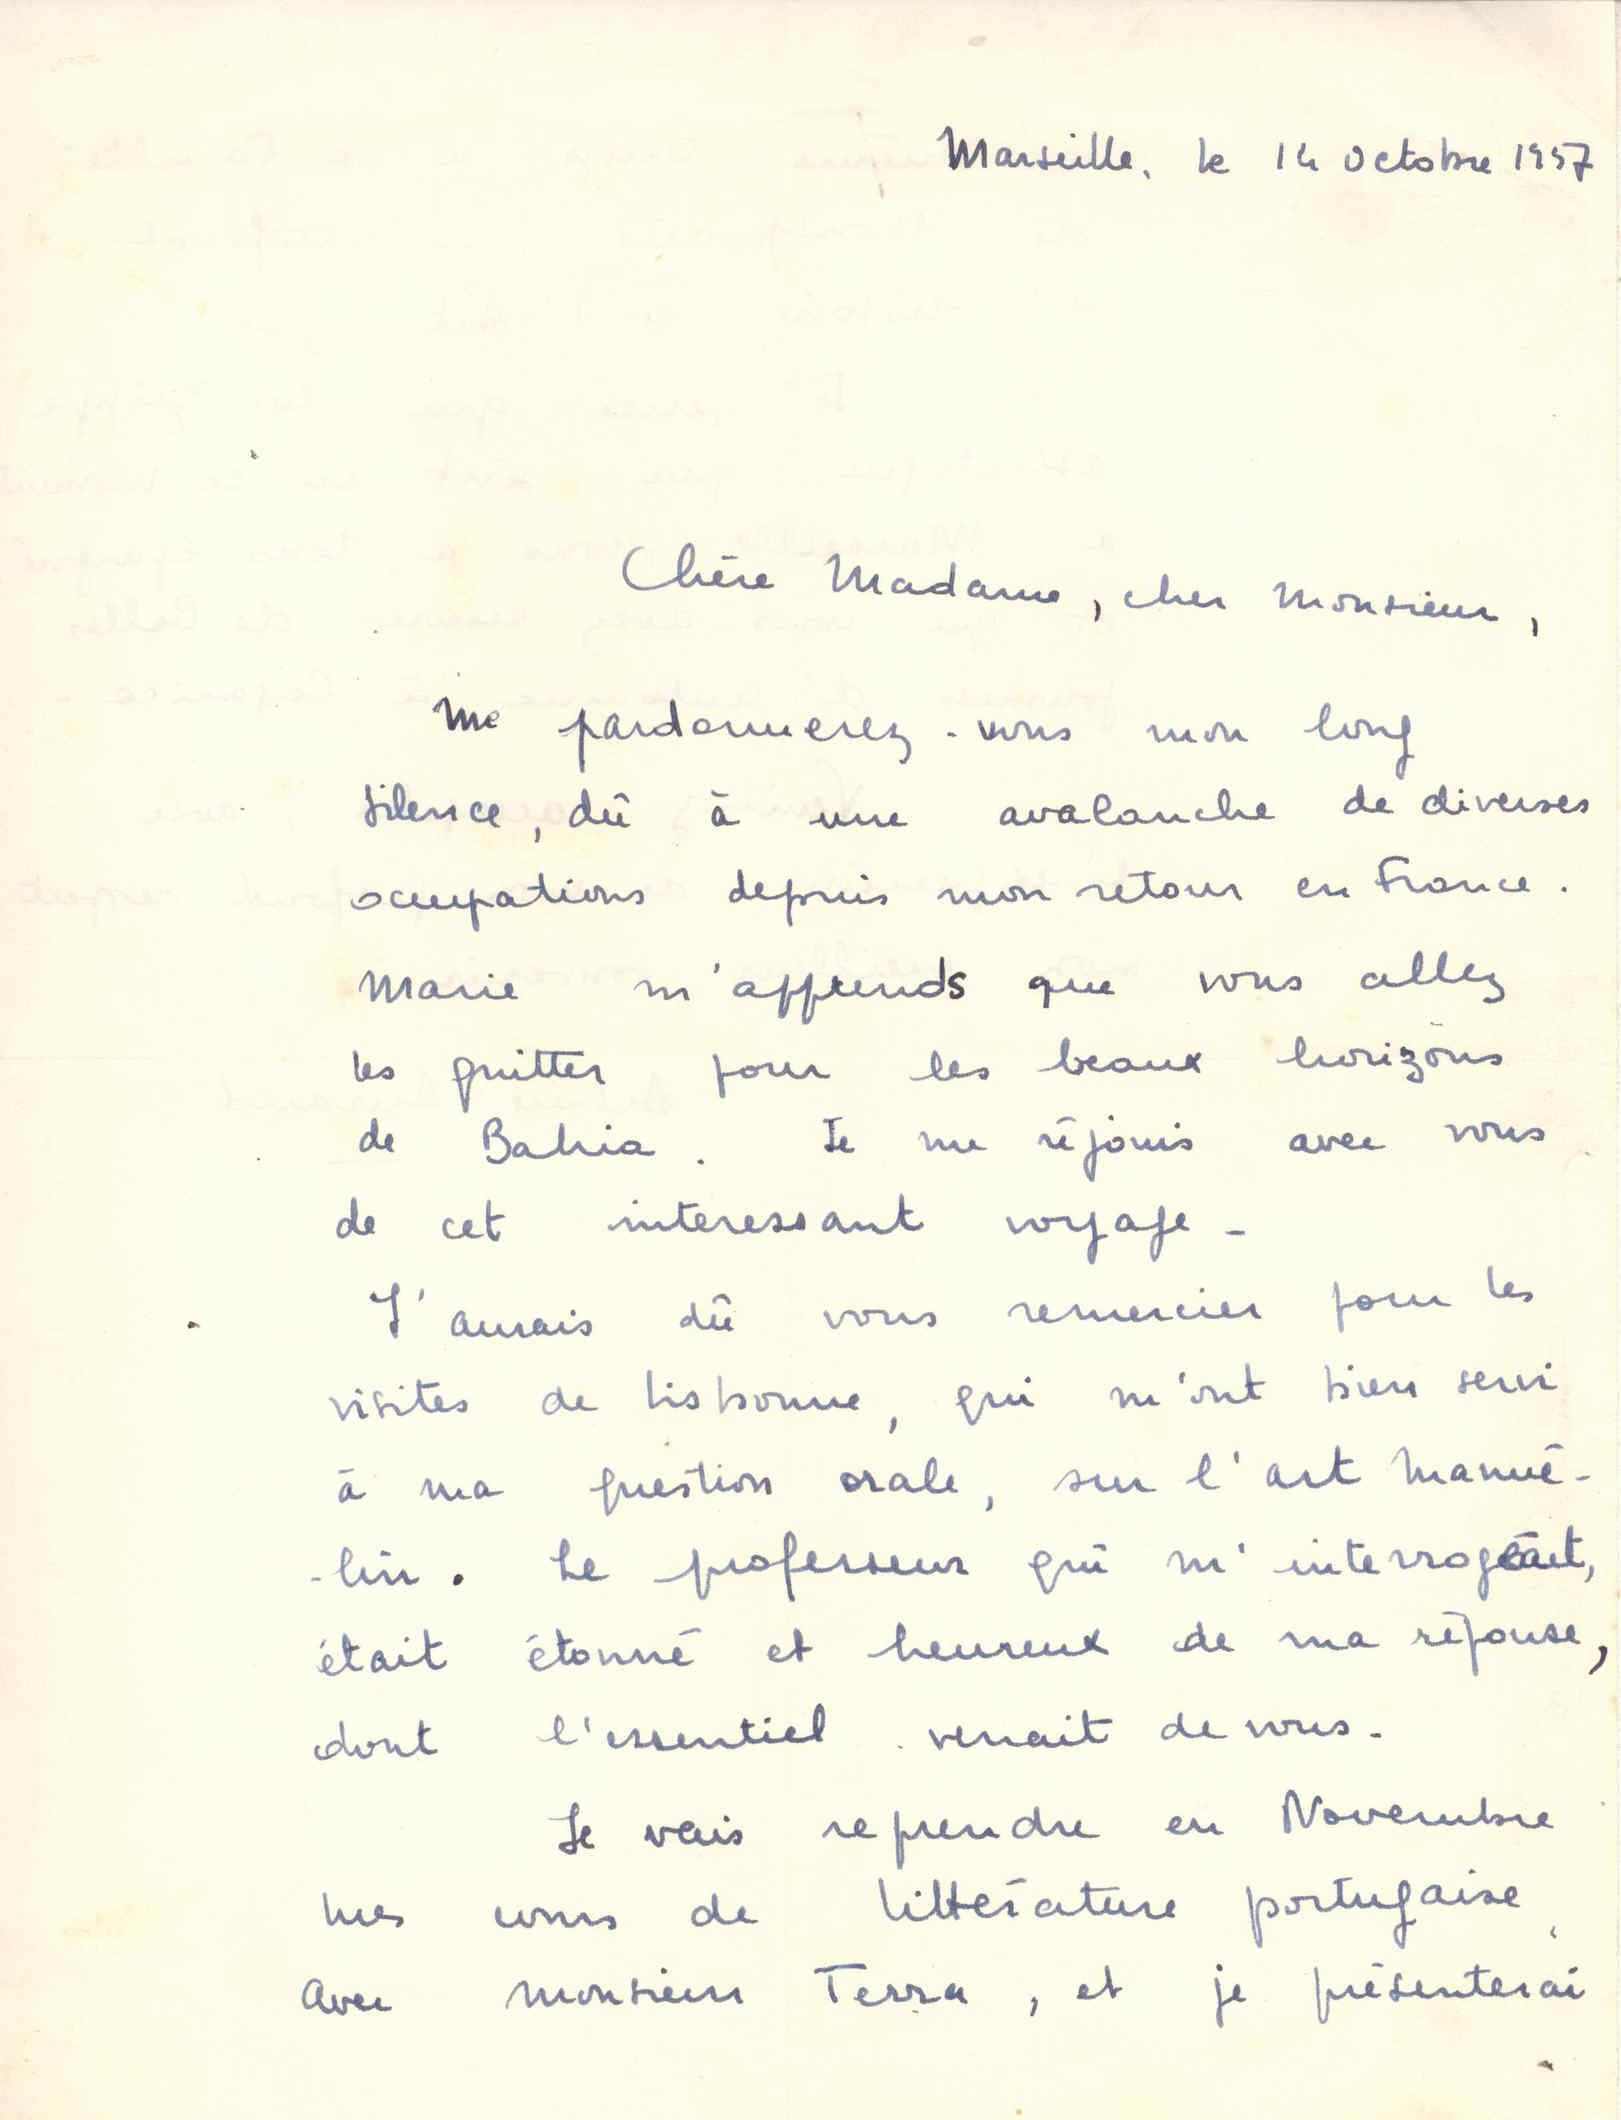 Marseille, le 14 Octobre 1957
Chère Madame, cher Monsieur,
Me pardonnerez-vous mon long
silence, dû à une avalanche de diverses
occupations depuis mon retour en France.
Marie m'apprends que vous allez
les quitter pour les beaux horizons
de Bahia. Je me réjouis avec vous
de cet interessant voyage -
J'aurais dû vous remercier pour les
visites de Lisbonne, qui m'ont bien servi
à ma question orale, sur l'art Manué-
-lin. Le professeur qui m'interrogeait,
était étonné et heureux de ma réponse,
dont l'essentiel venait de vous -
Je vais reprendre en Novembre
mes cours de littérature portugaise
avec Monsieur Terra, et je présenterai